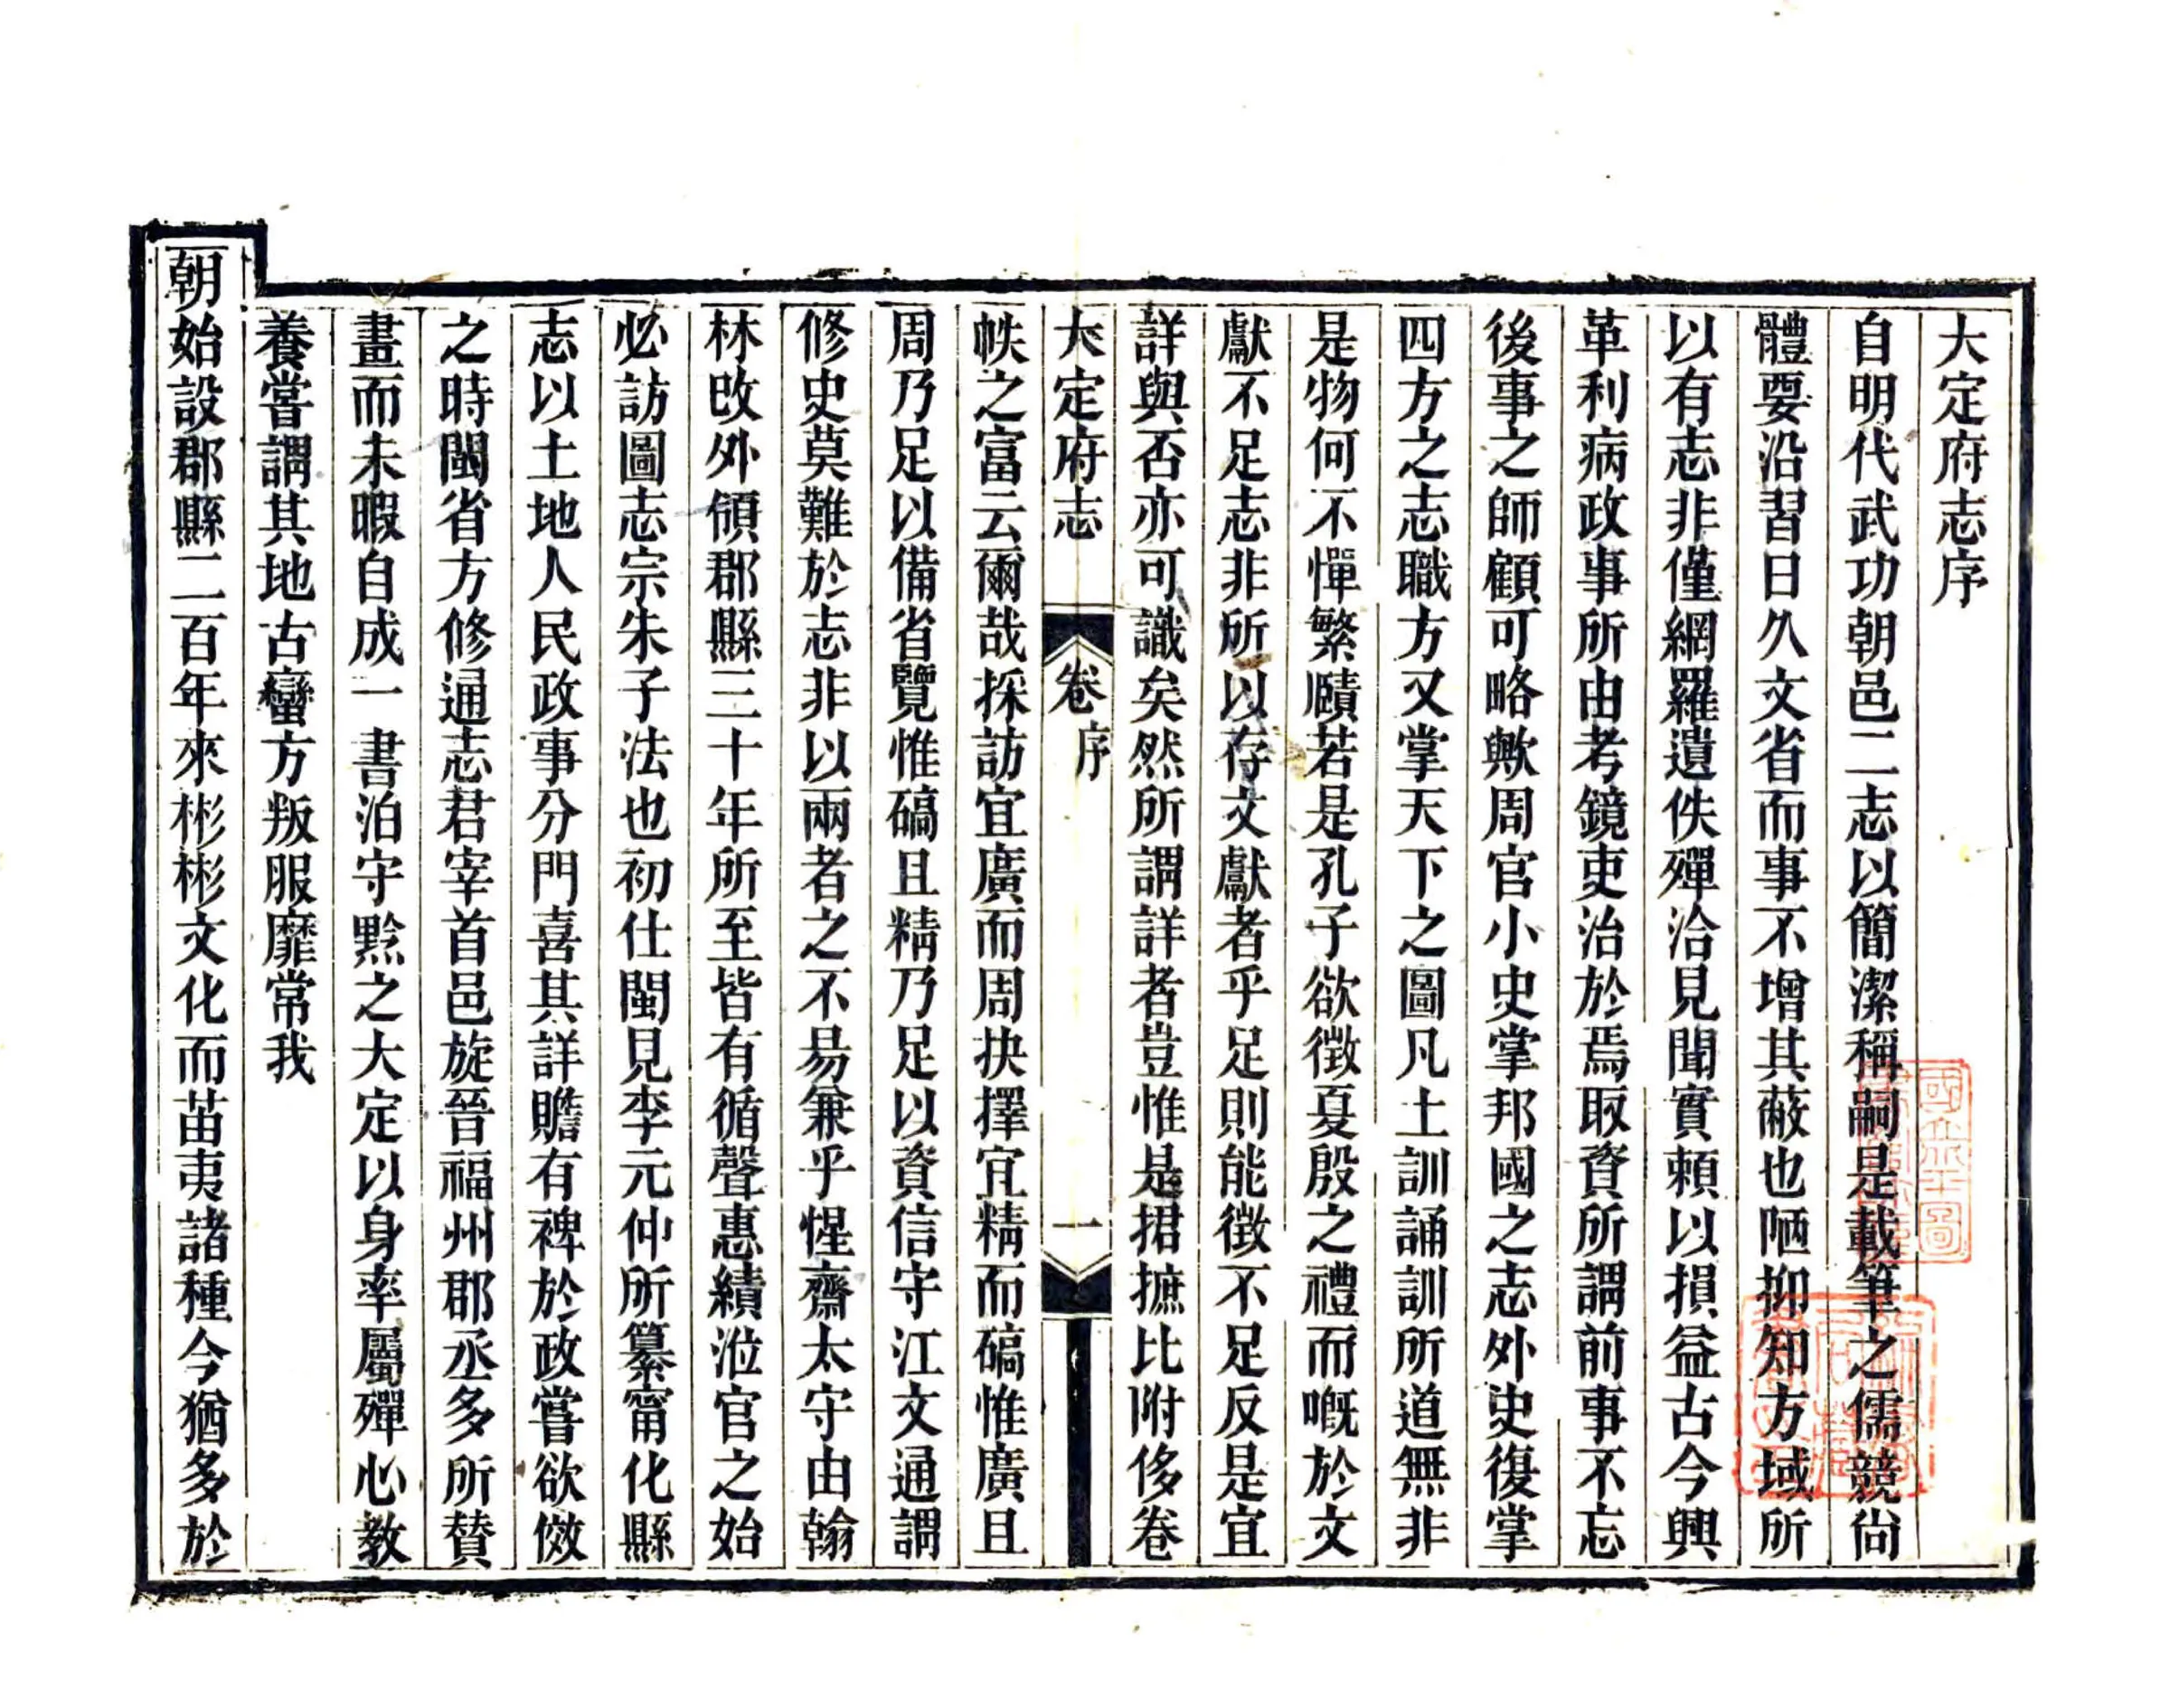 大定府志序
自明代武功朝邑二志以簡潔稱嗣是載筆之儒競尙
體要沿習日久文省而事不增其蔽也陋抑知方域所
以有志非僅網羅遺佚殫洽見聞實賴以損益古今興
革利病政事所由考鏡吏治於焉取資所謂前事不忘
後事之師顧可略歟周官小史掌邦國之志外史復掌
四方之志職方又掌天下之圖凡土訓誦訓所道無非
是物何不憚繁賾若是孔子欲徵夏殷之禮而嘅於文
獻不足志非所以存文獻者乎足則能徵不足反是宜
詳與否亦可識矣然所謂詳者豈惟是捃摭比附侈卷
大定府志 卷 序 一
帙之富云爾哉採訪宜廣而周抉擇宜精而碻惟廣且
周乃足以備省覽惟碻且精乃足以資信守江文通謂
修史莫難於志非以兩者之不易兼乎惺齋太守由翰
林改外領郡縣三十年所至皆有循聲惠績涖官之始
必訪圖志宗朱子法也初仕閩見李元仲所纂甯化縣
志以土地人民政事分門喜其詳贍有裨於政嘗欲傚
之時閩省方修通志君宰首邑旋晉福州郡丞多所贊
畫而未暇自成一書洎守黔之大定以身率屬殫心教
養嘗謂其地古蠻方叛服靡常我
朝始設郡縣二百年來彬彬文化而苗夷諸種今猶多於